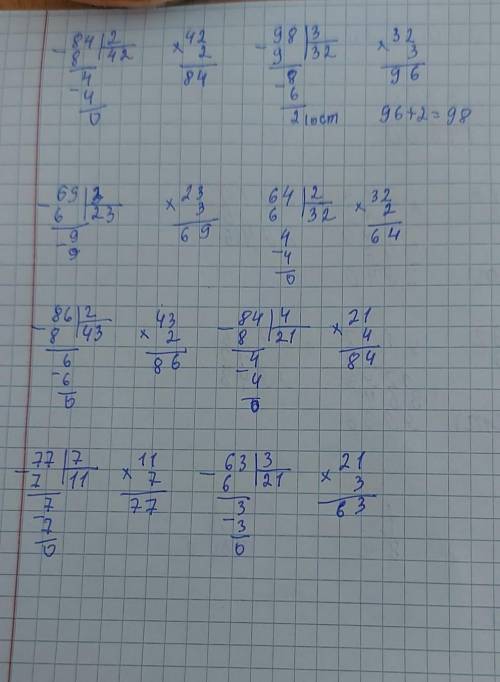 84 | 2   42   98 | 3   32
- 8 | 42   × 2   - 9 | 32   × 3
4   84   8   96
- 4   - 6
0   2 (ост   96+2=98
69 | 3   23   64 | 2   32
- 6 | 23   × 3   6 | 32   × 2
9   69   4   64
- 9   - 4
0
86 | 2   43   84 | 4   21
- 8 | 43   × 2   - 8 | 21   × 4
6   86   4   84
- 6   - 4
0   0
77 | 7   11   63 | 3   21
- 7 | 11   × 7   - 6 | 21   × 3
7   77   3   63
- 7   - 3
0   0